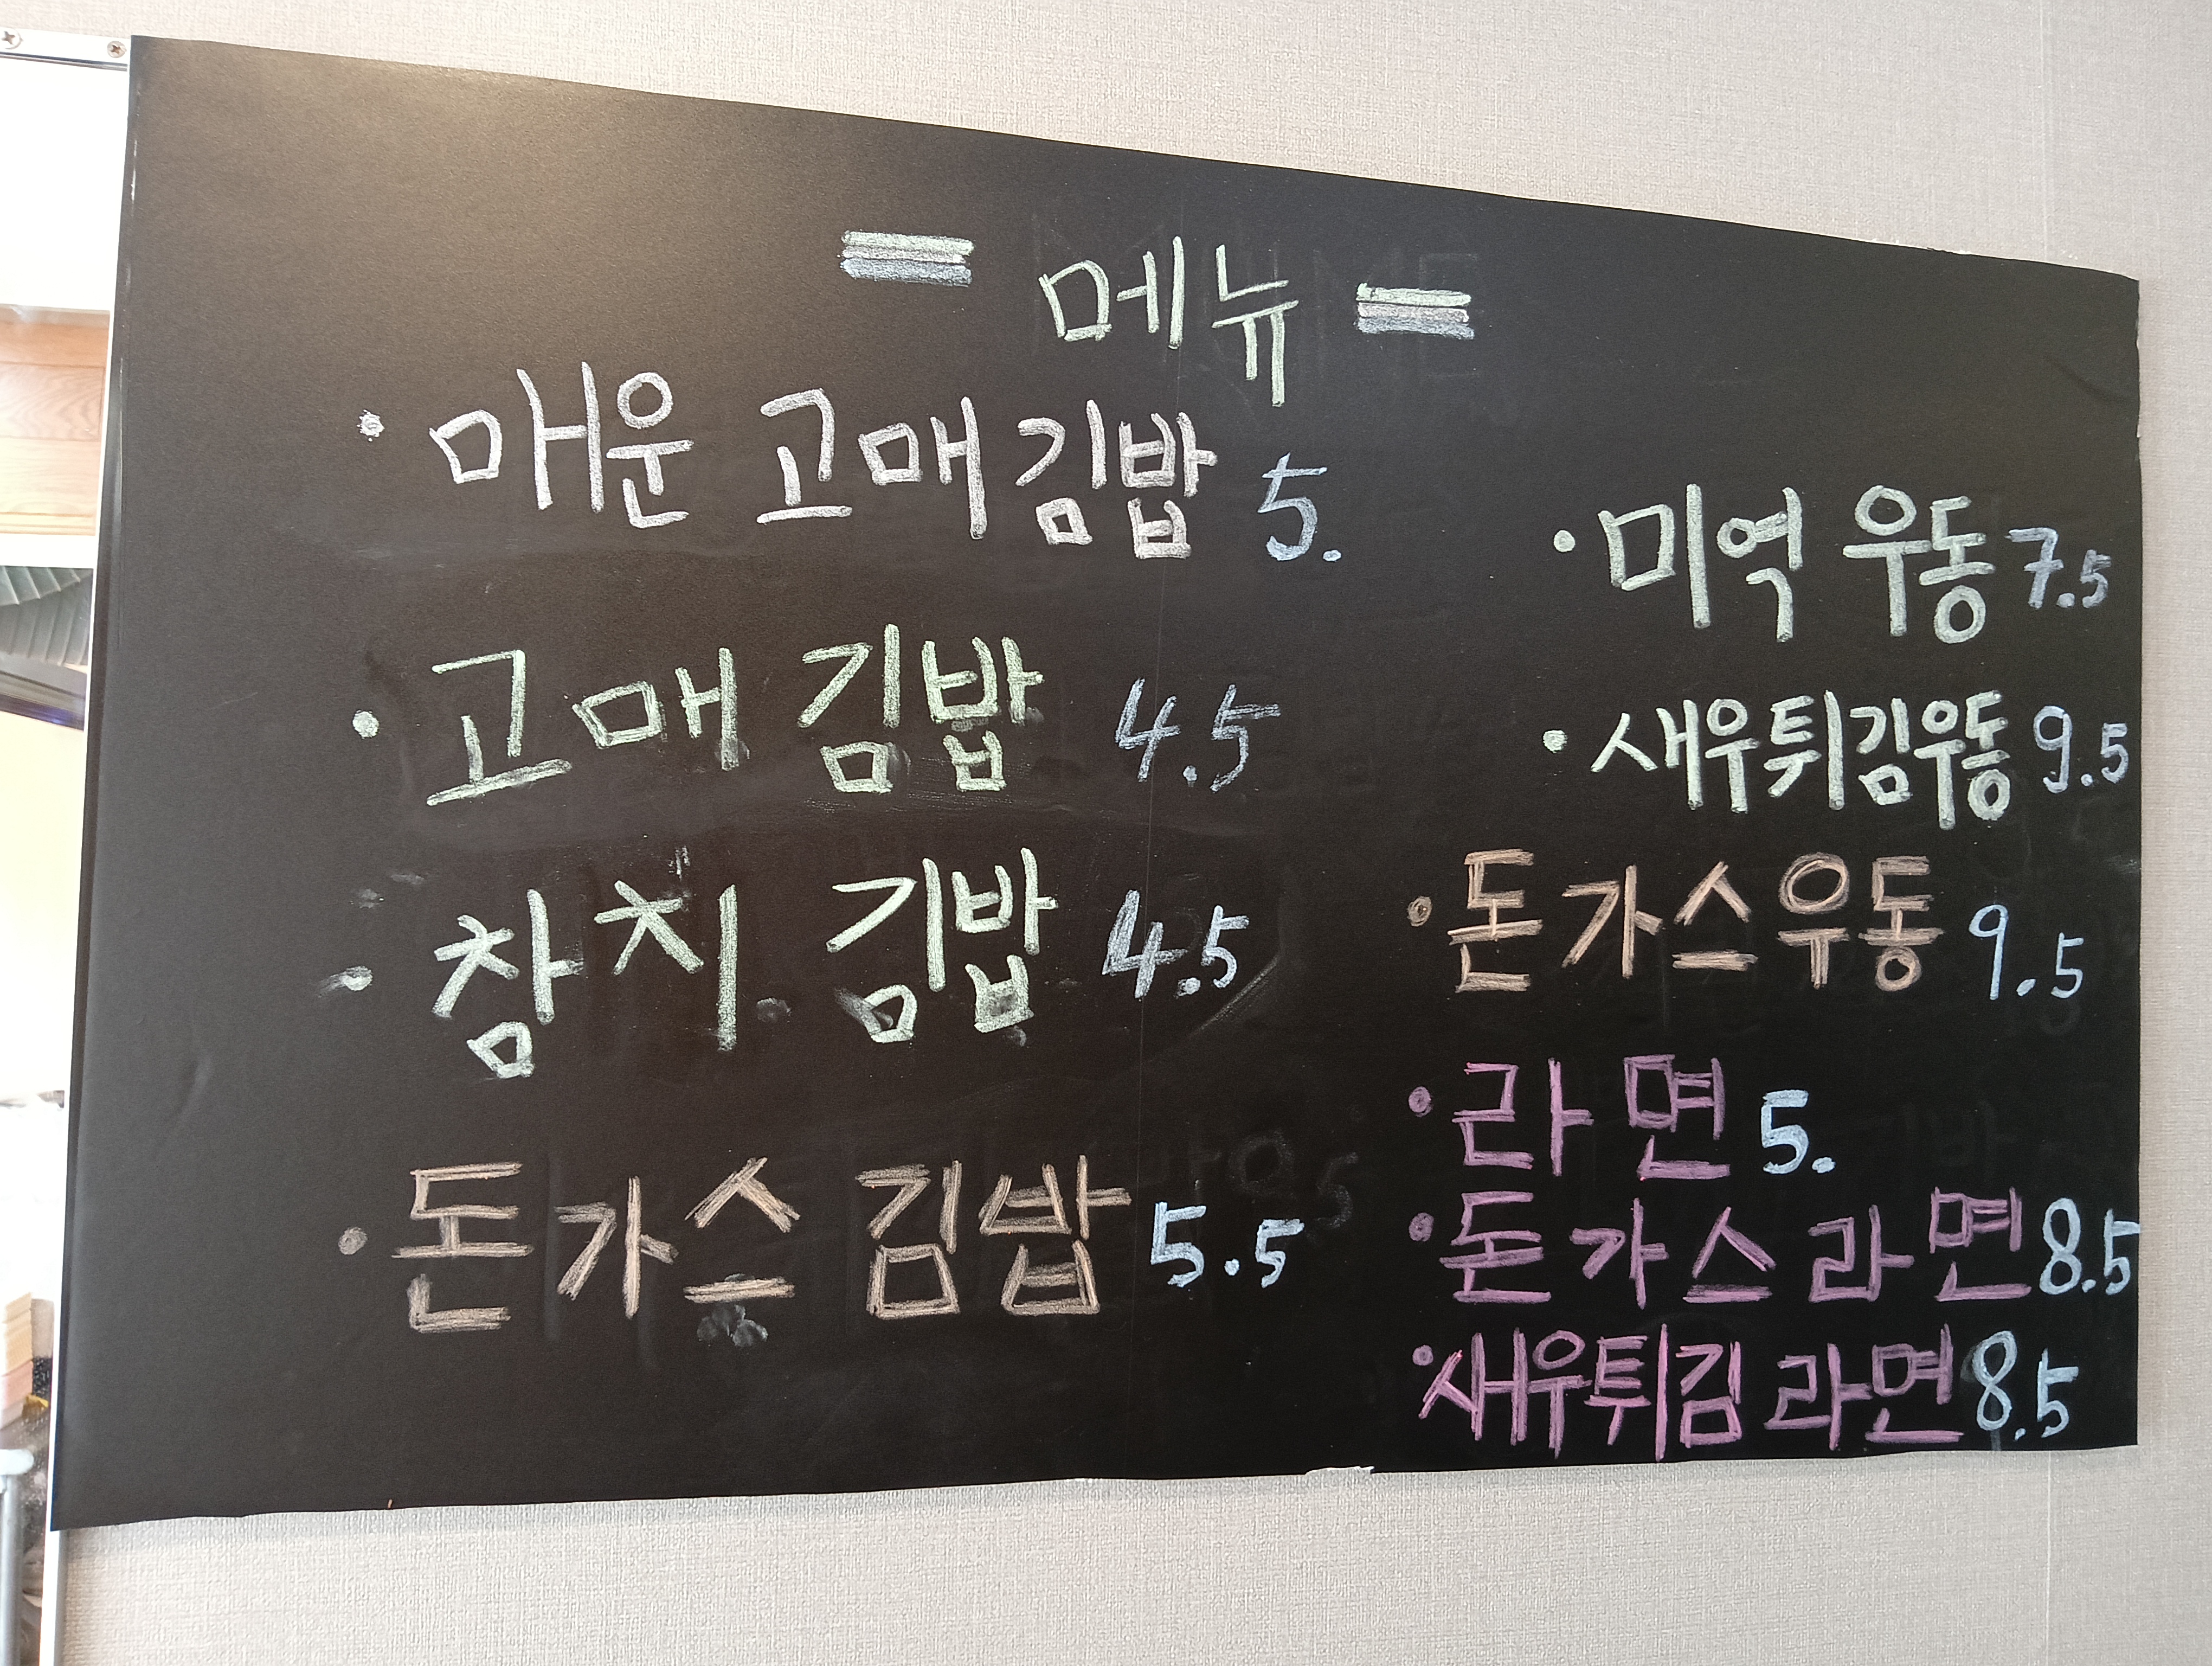 = 메뉴 =
• 매운 고매김밥 5.
• 고매 김밥 4.5
• 참치 김밥 4.5
• 돈가스 김밥 5.5
• 미역 우동 7.5
• 새우튀김우동 9.5
• 돈가스우동 9.5
• 라면 5.
• 돈가스라면 8.5
• 새우튀김 라면 8.5